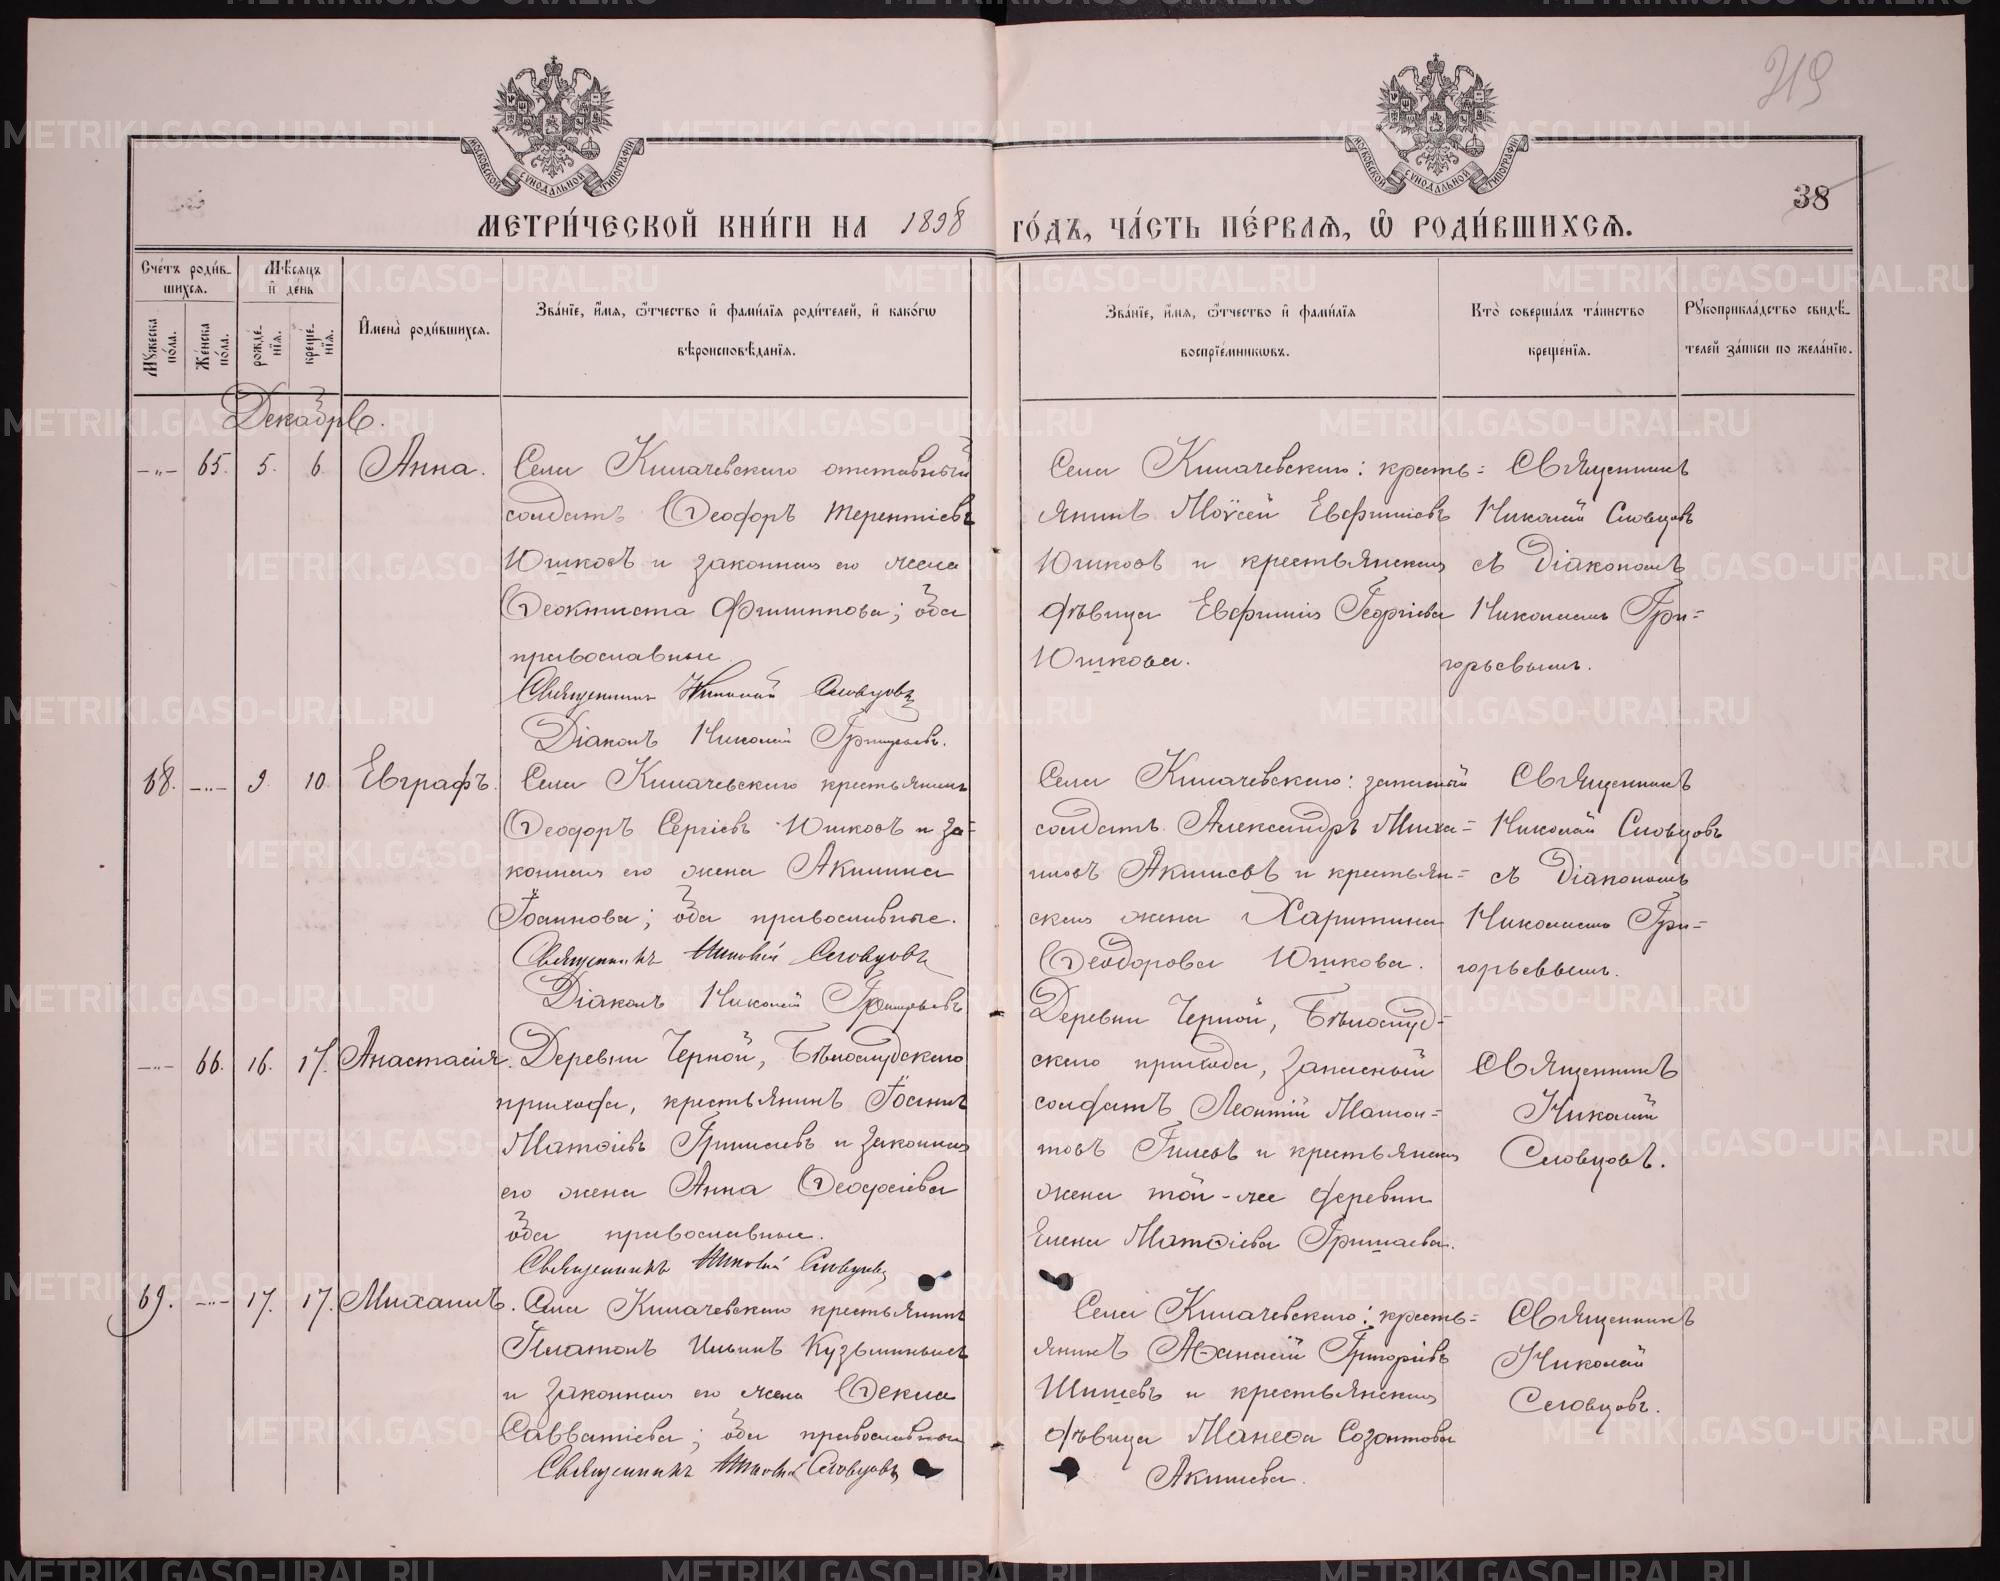 219
38
МОСКОВСКОЙ СУНОДАЛЬНОЙ ТИПОГРАФІИ
МОСКОВСКОЙ СУНОДАЛЬНОЙ ТИПОГРАФІИ
МЕТРИ́ЧЕСКОЙ КНИ́ГИ НА 1898 ГО́ДЪ, ЧА́СТЬ ПЕ́РВАѦ, Ѽ РОДИ́ВШИХСѦ.
Сче́тъ роди́в-
шихсѧ.
Мꙋжеска по́ла.
Же́нска по́ла.
Мѣ́сѧцъ и҆ де́нь
рожде́нїѧ.
креще́нїѧ.
И҆мена̀ роди́вшихсѧ.
Зва́нїе, и҆́мѧ, ѻ҆́тчество и҆ фами́лїѧ роди́телей, и҆ како́гѡ
вѣроисповѣ́данїѧ.
Зва́нїе, и҆́мѧ, ѻ҆́тчество и҆ фами́лїѧ
воспрїе́мникѡвъ.
Кто̀ соверша́лъ та́инство
креще́нїѧ.
Рꙋкоприкла́дство свидѣ́-
телей за́писи по жела́нїю.
Декабрь.
-"- 65. 5. 6. Анна.
Села Килачевскаго отставный
солдатъ Ѳеодоръ Терентіевъ
Юшковъ и законная его жена
Ѳеоктиста Филиппова; оба
православные.
Священникъ Николай Словцовъ
Діаконъ Николай Григорьевъ.
Села Килачевскаго: кресть=
янинъ Моѵсей Евфиміевъ
Юшковъ и крестьянская
дѣвица Евфимія Георгіева
Юшкова.
Священникъ
Николай Словцовъ
съ Діакономъ
Николаемъ Гри=
горьевымъ.
68. -"- 9. 10. Евграфъ.
Села Килачевскаго крестьянинъ
Ѳеодоръ Сергіевъ Юшковъ и за=
конная его жена Акилина
Іоаннова; оба православные.
Священникъ Николай Словцовъ
Діаконъ Николай Григорьевъ
Села Килачевскаго: запасный
солдатъ Александръ Миха=
иловъ Акишевъ и крестьян=
ская жена Харитина
Ѳеодорова Юшкова.
Священникъ
Николай Словцовъ
съ Діакономъ
Николаемъ Гри=
горьевымъ.
-"- 66. 16. 17. Анастасія.
Деревни Черной, Бѣлослудскаго
прихода, крестьянинъ Іоаннъ
Матѳіевъ Гришаевъ и законная
его жена Анна Ѳеодосіева
оба православные.
Священникъ Николай Словцовъ
Деревни Черной, Бѣлослуд=
скаго прихода, запасный
солдатъ Леонтій Мамон=
товъ Гилевъ и крестьянская
жена той-же деревни
Елена Матѳіева Гришаева.
Священникъ
Николай
Словцовъ.
69. -"- 17. 17. Михаилъ.
Села Килачевскаго крестьянинъ
Платонъ Ильинъ Кузьминыхъ
и законная его жена Ѳекла
Савватіева; оба православные
Священникъ Николай Словцовъ
Села Килачевскаго: кресть=
янинъ Аѳанасій Григоріевъ
Шишевъ и крестьянская
дѣвица Манеѳа Созонтова
Акишева.
Священникъ
Николай
Словцовъ.
METRIKI.GASO-URAL.RU